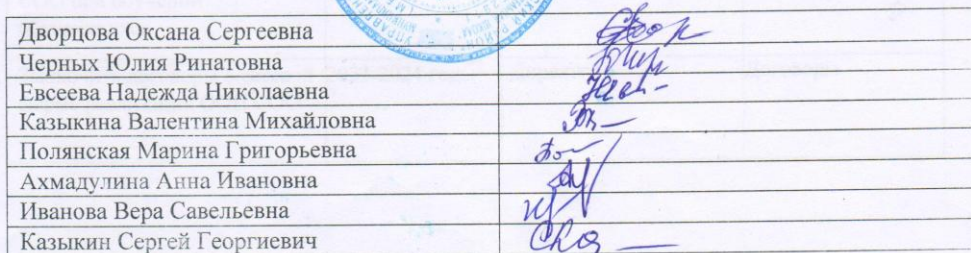 Дворцова Оксана Сергеевна
Черных Юлия Ринатовна
Евсеева Надежда Николаевна
Казыкина Валентина Михайловна
Полянская Марина Григорьевна
Ахмадулина Анна Ивановна
Иванова Вера Савельевна
Казыкин Сергей Георгиевич